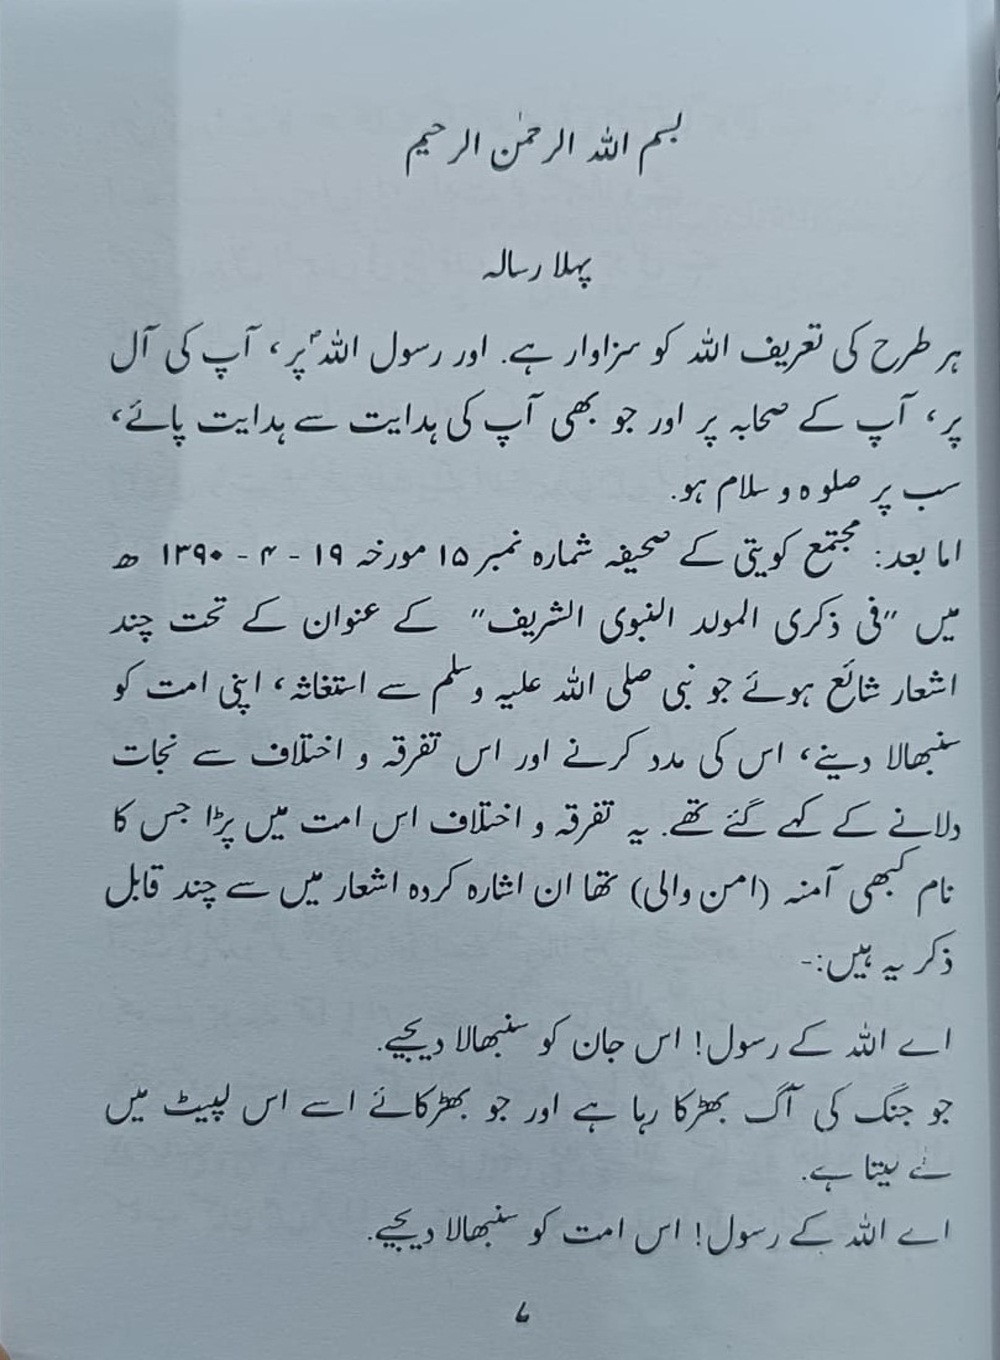 بسم اللہ الرحمٰن الرحیم
پہلا رسالہ
ہر طرح کی تعریف اللہ کو سزاوار ہے. اور رسول اللہؐ پر، آپ کی آل
پر، آپ کے صحابہ پر اور جو بھی آپ کی ہدایت سے ہدایت پائے،
سب پر صلوہ و سلام ہو.
اما بعد: مجتمع کویتی کے صحیفہ شمارہ نمبر ۱۵ مورخہ ۱۹ - ۴ - ۱۳۹۰ ھ
میں "فی ذکری المولد النبوی الشریف" کے عنوان کے تحت چند
اشعار شائع ہوئے جو نبی صلی اللہ علیہ وسلم سے استغاثہ، اپنی امت کو
سنبھالا دینے، اس کی مدد کرنے اور اس تفرقہ و اختلاف سے نجات
دلانے کے کہے گئے تھے. یہ تفرقہ و اختلاف اس امت میں پڑا جس کا
نام کبھی آمنہ (امن والی) تھا ان اشارہ کردہ اشعار میں سے چند قابل
ذکر یہ ہیں:-
اے اللہ کے رسول! اس جان کو سنبھالا دیجیے.
جو جنگ کی آگ بھڑکا رہا ہے اور جو بھڑکائے اسے اس لپیٹ میں
لے لیتا ہے.
اے اللہ کے رسول! اس امت کو سنبھالا دیجیے.